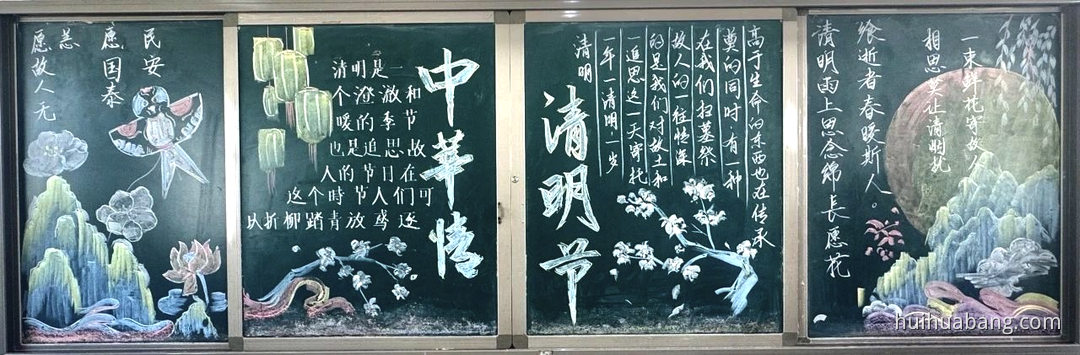 民安
愿国泰
恙
愿故人无
中華情
清明是一
个澄澈和
暖的季节
也是追思故
人的节日在
这个時节人们可
以折柳踏青放鸢逐
高于生命的东西也在传承
奠的同时,有一种
在我们扫墓祭
故人的一往情深
的是我们对故土和
一追思这一天寄托
一年一清明,一岁
清明
清明节
一束鲜花寄故人
相思莫让清明
逝者春晚斯人。
清明雨上思念绵长愿花
huihuabang.com